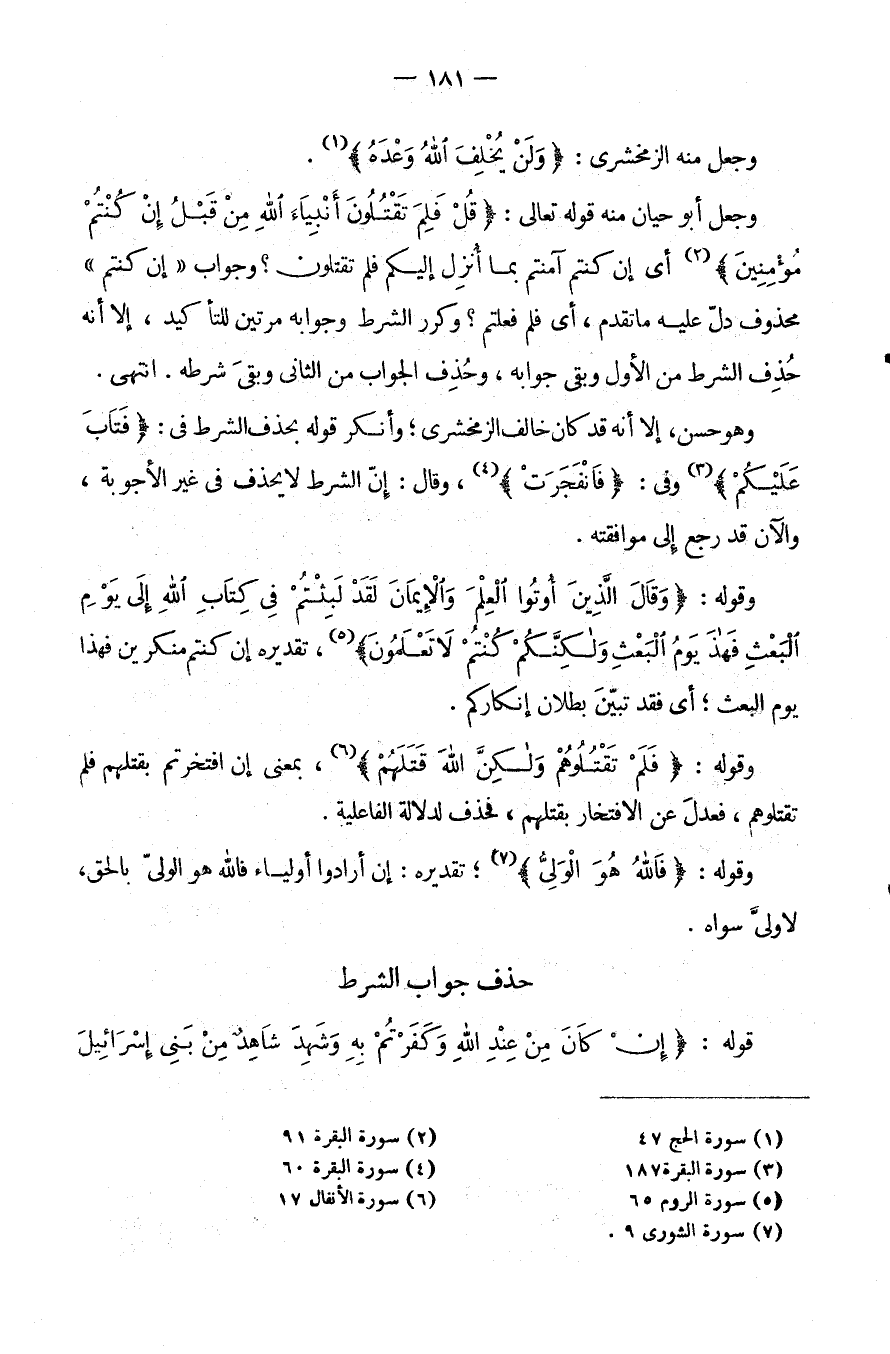 — ١٨١ —
وجعل منه الزمخشرى : ﴿ وَلَنْ يُخْلِفَ ٱللهُ وَعْدَهُ ﴾(١) .
وجعل أبو حيان منه قوله تعالى : ﴿ قُلْ فَلِمَ تَقْتُلُونَ أَنْبِيَاءَ ٱللهِ مِنْ قَبْلُ إِنْ كُنْتُمْ
مُؤْمِنِينَ ﴾(٢) أى إن كنتم آمنتم بما أُنزل إليكم فلم تقتلون ؟ وجواب « إن كنتم »
محذوف دلّ عليه ماتقدم ، أى فلم فعلتم ؟ وكرر الشرط وجوابه مرتين للتأكيد ، إلا أنه
حُذِف الشرط من الأول وبقى جوابه ، وحُذِف الجواب من الثانى وبقىَ شرطه . انتهى .
وهو حسن، إلا أنه قد كان خالف الزمخشرى ؛ وأنكر قوله بحذف الشرط فى : ﴿ فَتَابَ
عَلَيْكُمْ ﴾(٣) وفى : ﴿ فَانْفَجَرَتْ ﴾(٤) ، وقال : إنّ الشرط لايحذف فى غير الأجوبة ،
والآن قد رجع إلى موافقته .
وقوله : ﴿ وَقَالَ الَّذِينَ أُوتُوا ٱلْعِلْمَ وَٱلْإِيمَانَ لَقَدْ لَبِثْتُمْ فِى كِتَابِ ٱللهِ إِلَى يَوْمِ
ٱلْبَعْثِ فَهٰذَا يَوْمُ ٱلْبَعْثِ وَلٰكِنَّكُمْ كُنْتُمْ لَا تَعْلَمُونَ﴾(٥) ، تقديره إن كنتم منكرين فهذا
يوم البعث ؛ أى فقد تبيّنَ بطلان إنكاركم .
وقوله : ﴿ فَلَمْ تَقْتُلُوهُمْ وَلٰكِنَّ اللهَ قَتَلَهُمْ ﴾(٦) ، بمعنى إن افتخرتم بقتلهم فلم
تقتلوهم ، فعدلَ عن الافتخار بقتلهم ، فحذف لدلالة الفاعلية .
وقوله : ﴿ فَاللهُ هُوَ الْوَلِىُّ ﴾(٧) ؛ تقديره : إن أرادوا أولياء فالله هو الولىّ بالحق،
لاولىَّ سواه .
حذف جواب الشرط
قوله : ﴿ إِنْ كَانَ مِنْ عِنْدِ اللهِ وَكَفَرْتُمْ بِهِ وَشَهِدَ شَاهِدٌ مِنْ بَنِى إِسْرَائِيلَ
(١) سورة الحج ٤٧ (٢) سورة البقرة ٩١
(٣) سورة البقرة ١٨٧ (٤) سورة البقرة ٦٠
(٥) سورة الروم ٦٥ (٦) سورة الأنفال ١٧
(٧) سورة الشورى ٩ .